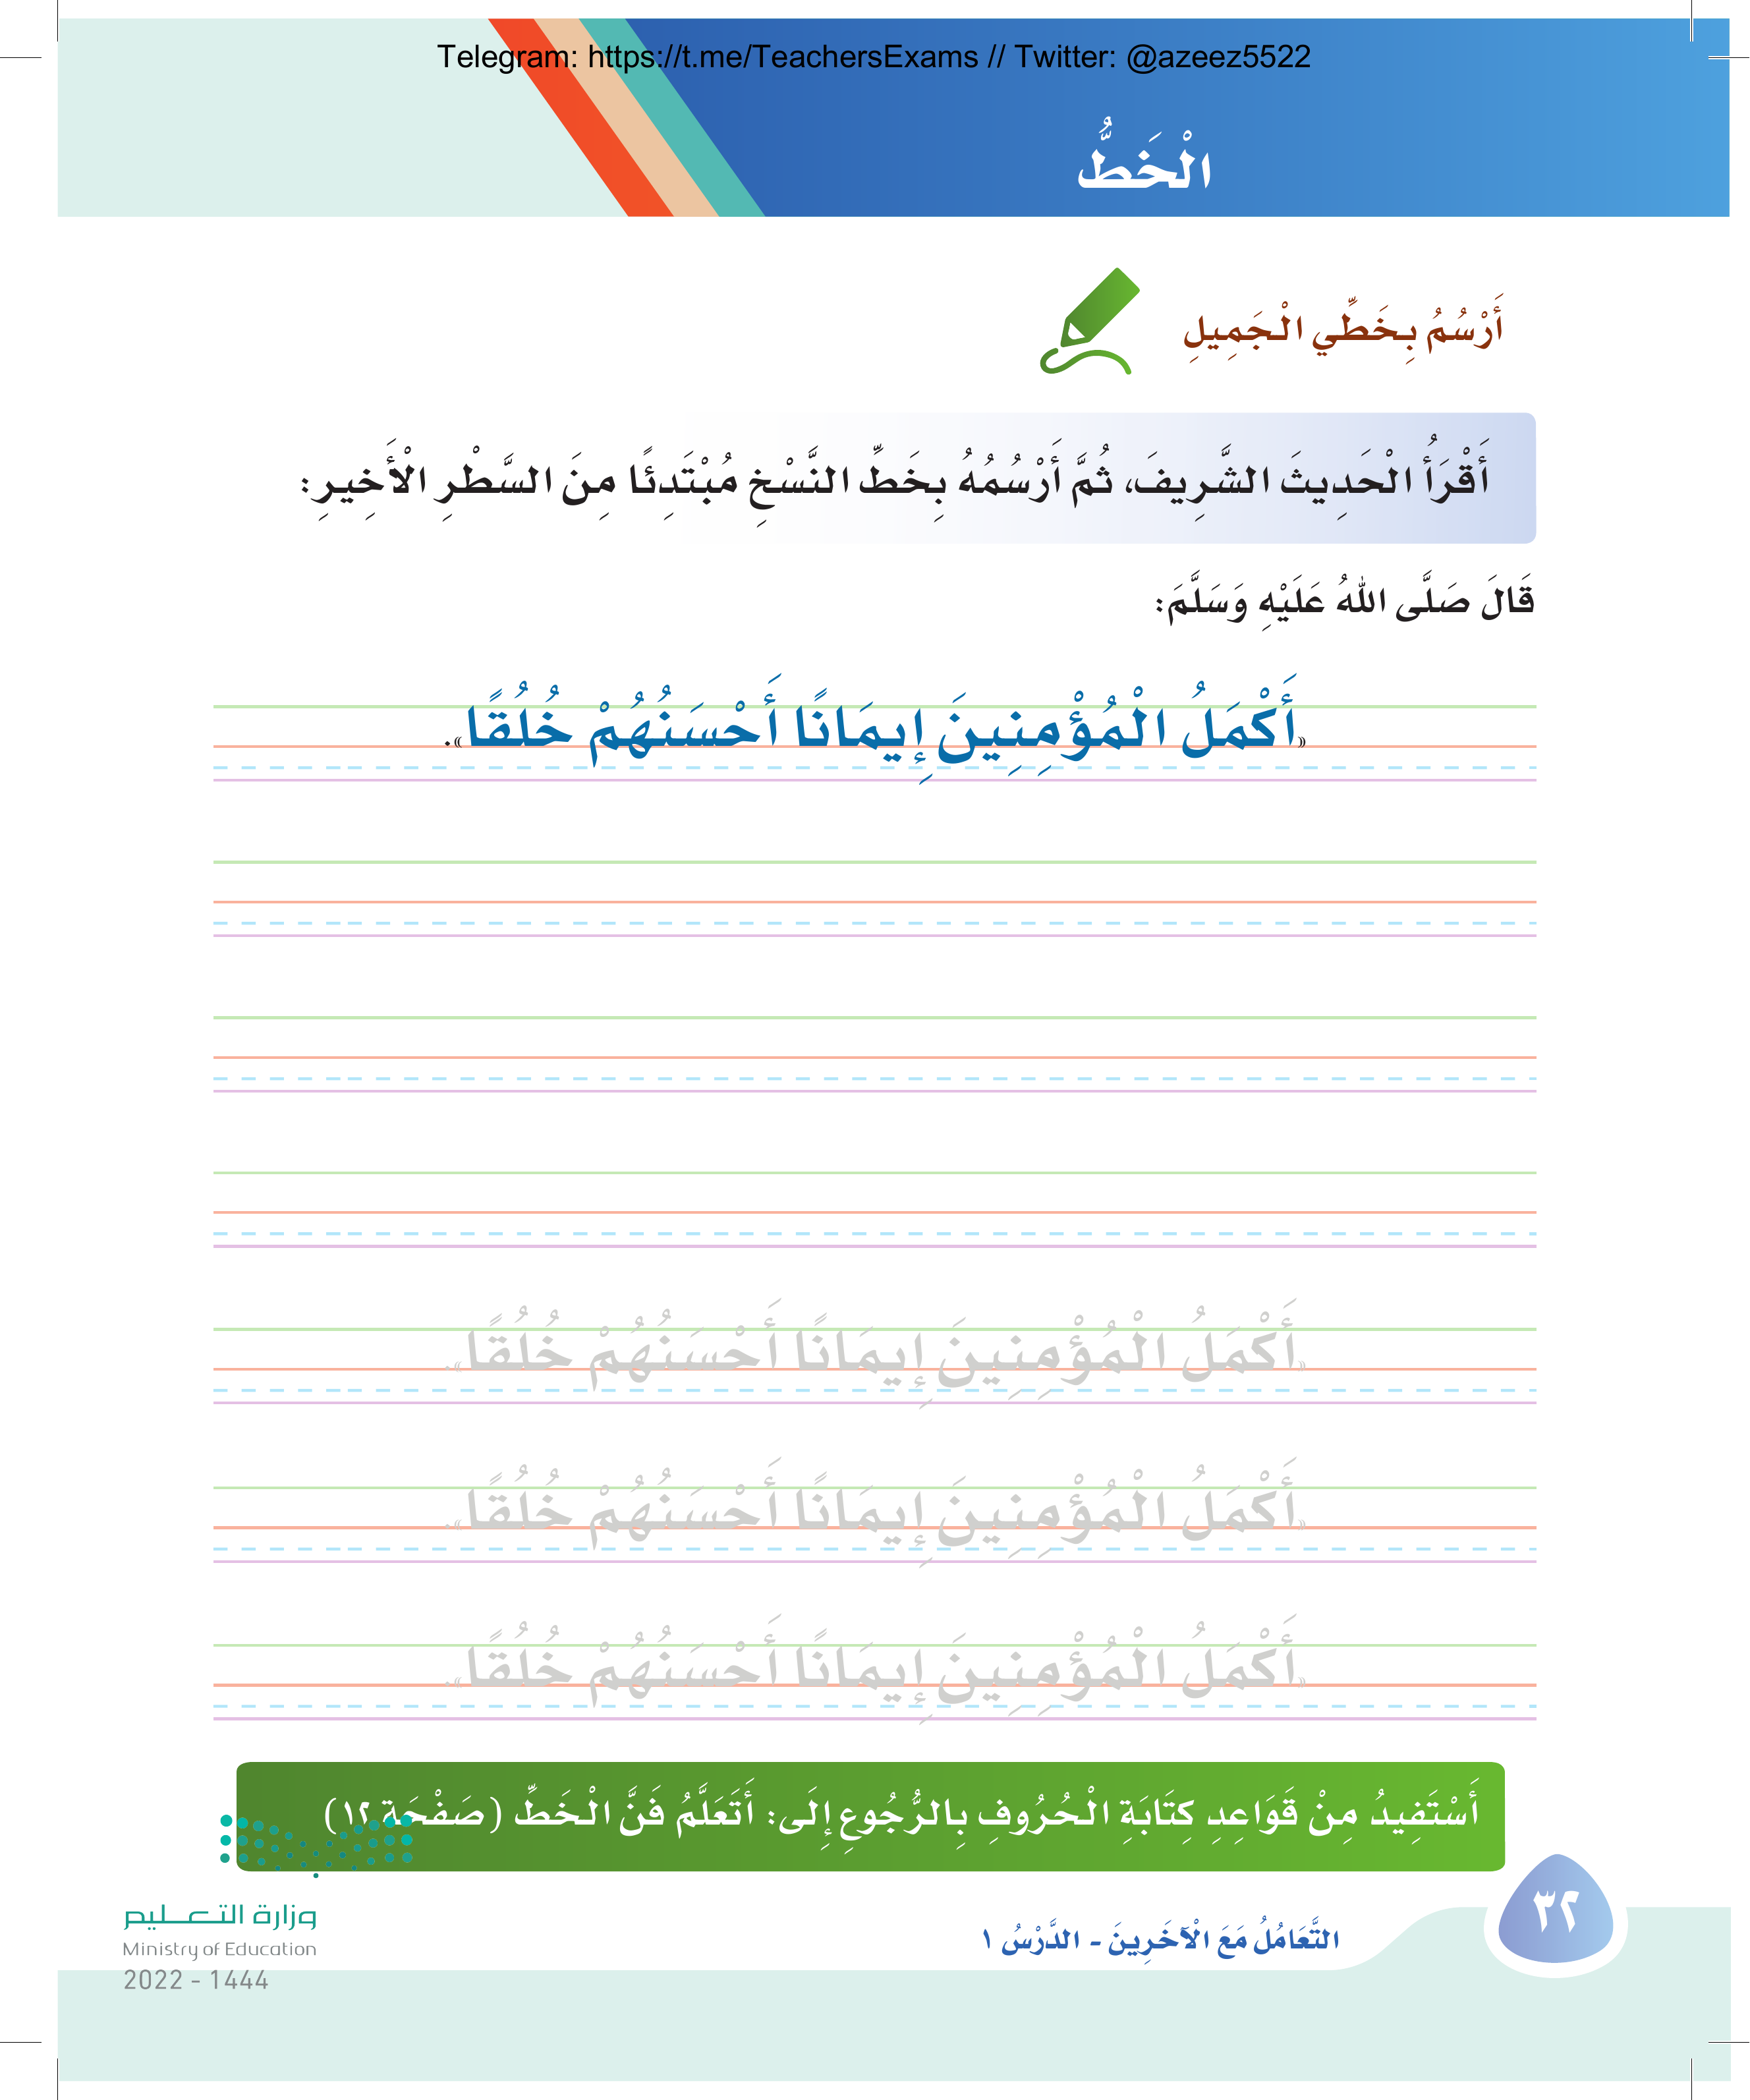 Telegram: https://t.me/TeachersExams // Twitter: @azeez5522
الْخَطُّ
أَرْسُمُ بِخَطِّي الْجَمِيلِ
أَقْرَأُ الْحَدِيثَ الشَّرِيفَ، ثُمَّ أَرْسُمُهُ بِخَطِّ النَّسْخِ مُبْتَدِئًا مِنَ السَّطْرِ الْأَخِيرِ:
قَالَ صَلَّى اللهُ عَلَيْهِ وَسَلَّمَ:
«أَكْمَلُ الْمُؤْمِنِينَ إِيمَانًا أَحْسَنُهُمْ خُلُقًا».
«أَكْمَلُ الْمُؤْمِنِينَ إِيمَانًا أَحْسَنُهُمْ خُلُقًا».
«أَكْمَلُ الْمُؤْمِنِينَ إِيمَانًا أَحْسَنُهُمْ خُلُقًا».
«أَكْمَلُ الْمُؤْمِنِينَ إِيمَانًا أَحْسَنُهُمْ خُلُقًا».
أَسْتَفِيدُ مِنْ قَوَاعِدِ كِتَابَةِ الْحُرُوفِ بِالرُّجُوعِ إِلَى: أَتَعَلَّمُ فَنَّ الْخَطِّ (صَفْحَة ١٢)
٣٢
التَّعَامُلُ مَعَ الْآخَرِينَ - الدَّرْسُ ١
وزارة التعليم
Ministry of Education
2022 - 1444